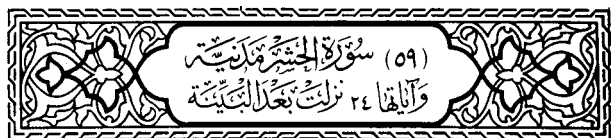 (٥٩) سُورَةُ الْحَشْرِ مَدَنِيَّة
وَآيَاتُهَا ٢٤ نَزَلَتْ بَعْدَ الْبَيِّنَة